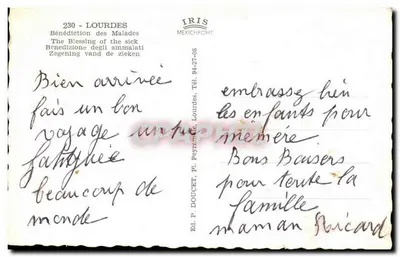 230 - LOURDES
Bénédiction des Malades
The Blessing of the sick
Benedizione degli ammalati
Zegening vand de zieken
IRIS
MEXICHROME
Bien arrivée
fais un bon
voyage un peu
fatiguée
beaucoup de
monde
Ed. P. DOUCET, Pl. Peyramale, Lourdes, Tél. 94-27-08
embrassez bien
les enfants pour
mémère
Bons Baisers
pour toute la
famille
maman Ricard